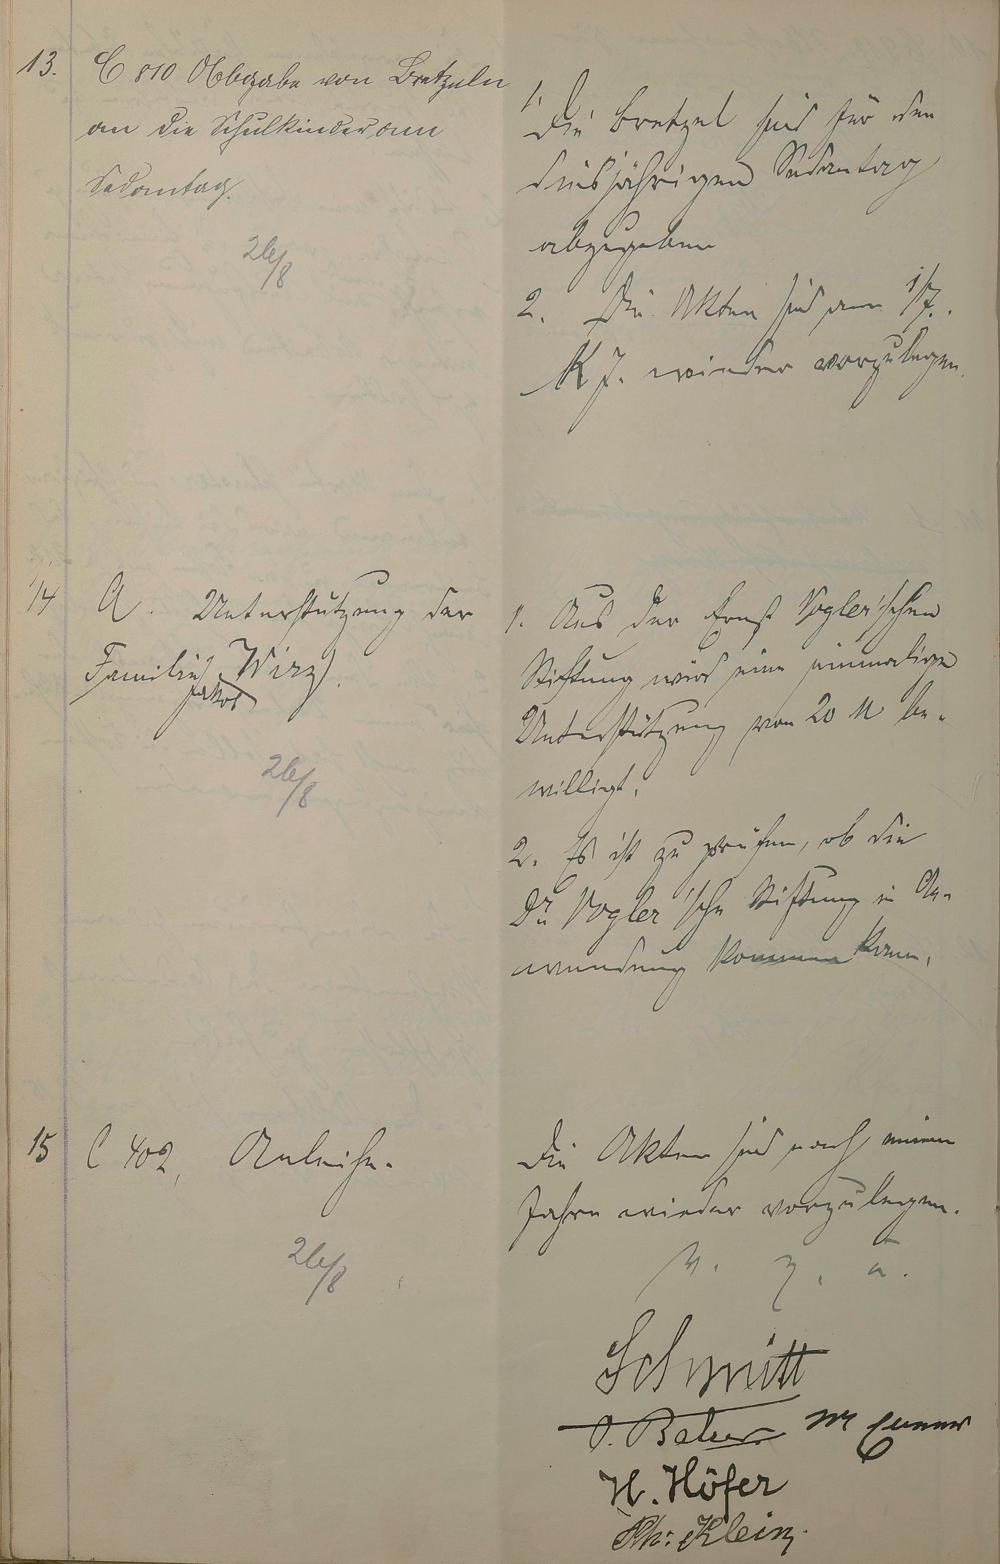 13.
C 810 Abgabe von Bretzeln
an die Schulkinder am
Sedantag.
26/8
1.
Die Bretzel sind für den
diesjährigen Sedantag
abzugeben
2. Die Akten sind am 1/7.
K J. wieder vorzulegen.
14
A. Unterstützung der
Familie Wirz.
Jakob
26/8
1. Aus der Ernst Vogler'schen
Stiftung wird eine einmalige
Unterstützung von 20 M be-
willigt.
2. Es ist zu prüfen, ob die
Dr. Vogler'sche Stiftung in An-
wendung kommen kann.
15
C 402, Anleihe.
26/8
Die Akten sind nach einem
Jahre wieder vorzulegen.
V. g. u.
Schmitt
O. Balzer
H. Höfer
Ph: Klein.